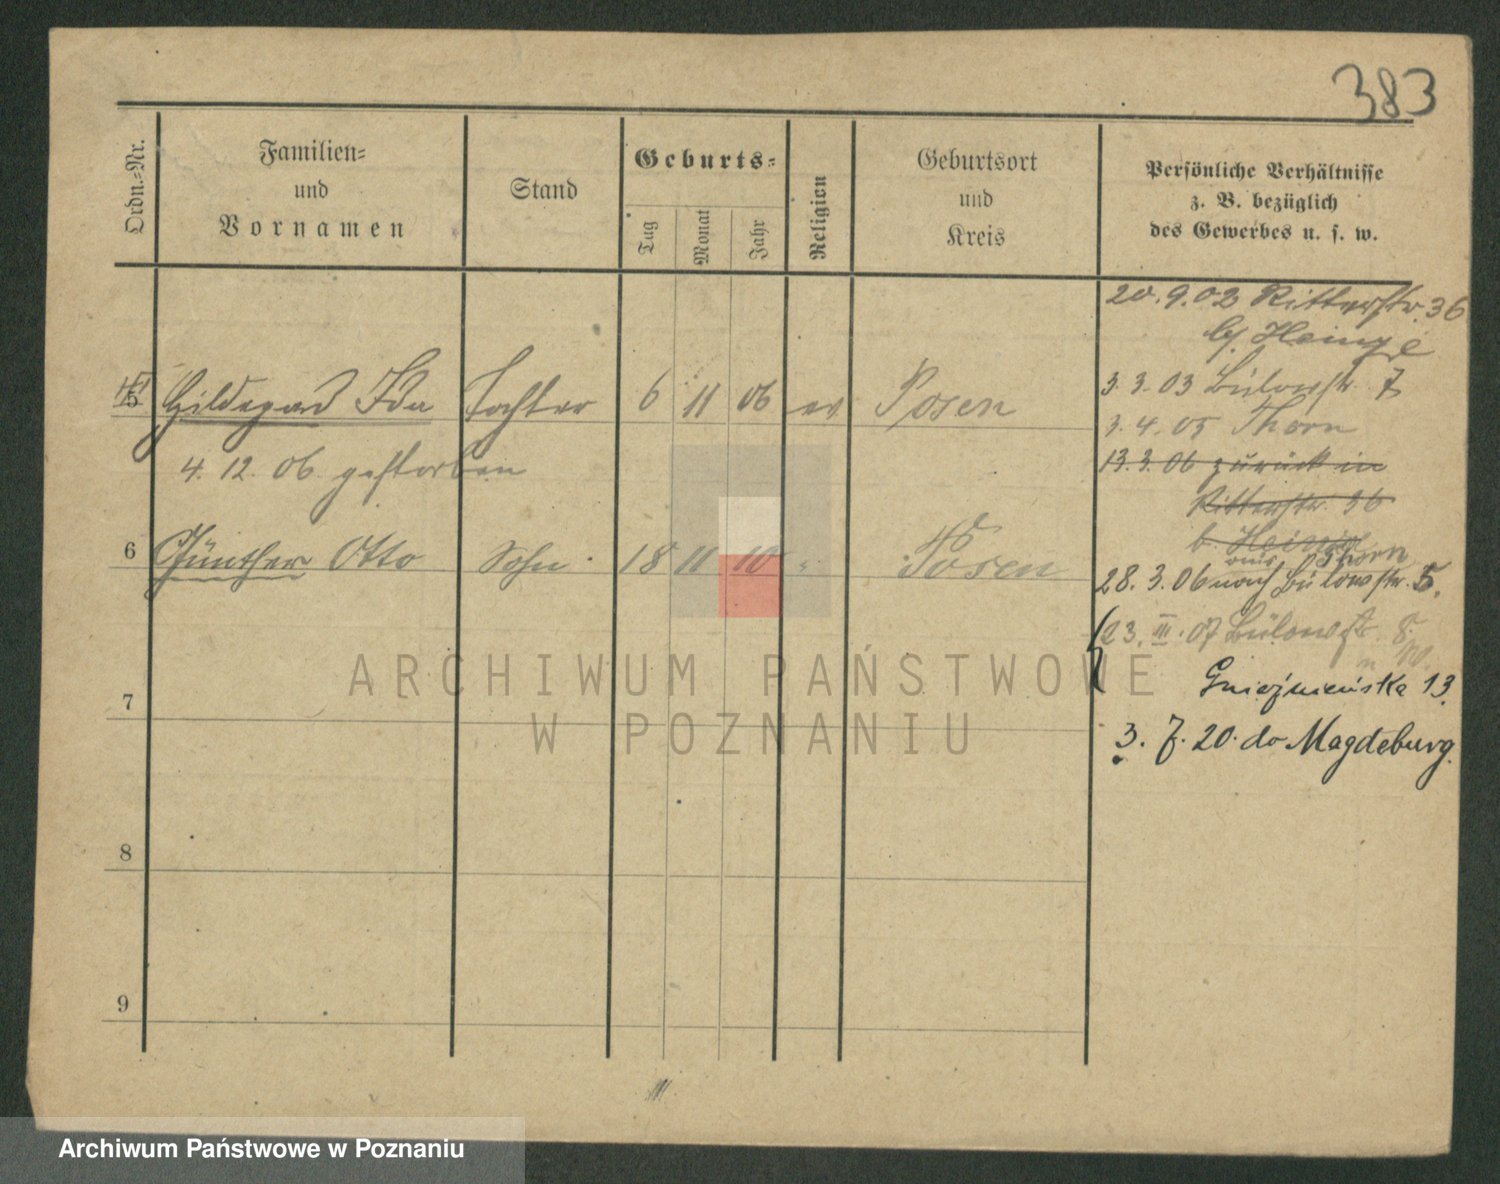 383
Ordn.-Nr.
Familien-
und
Vornamen
Stand
Geburts-
Tag
Monat
Jahr
Religion
Geburtsort
und
Kreis
Persönliche Verhältnisse
z. B. bezüglich
des Gewerbes u. s. w.
20.9.02 Ritterstr. 36
b/ Heinze
5 Hildegard Ida Tochter 6 11 06 ev Posen
3.3.03 Bülowstr. 7
4. 12. 06. gestorben
3.4.05 Thorn
13.3.06 zurück in
Ritterstr. 36
b. Heinze
6 Günther Otto Sohn 18 11 10 " Posen
aus Thorn
28.3.06 nach Bülowstr. 5.
23. III. 07 Bülowstr. 8.
Gnieźnieńska 13
7
3. 7. 20. do Magdeburg.
8
9
ARCHIWUM PAŃSTWOWE
W POZNANIU
Archiwum Państwowe w Poznaniu